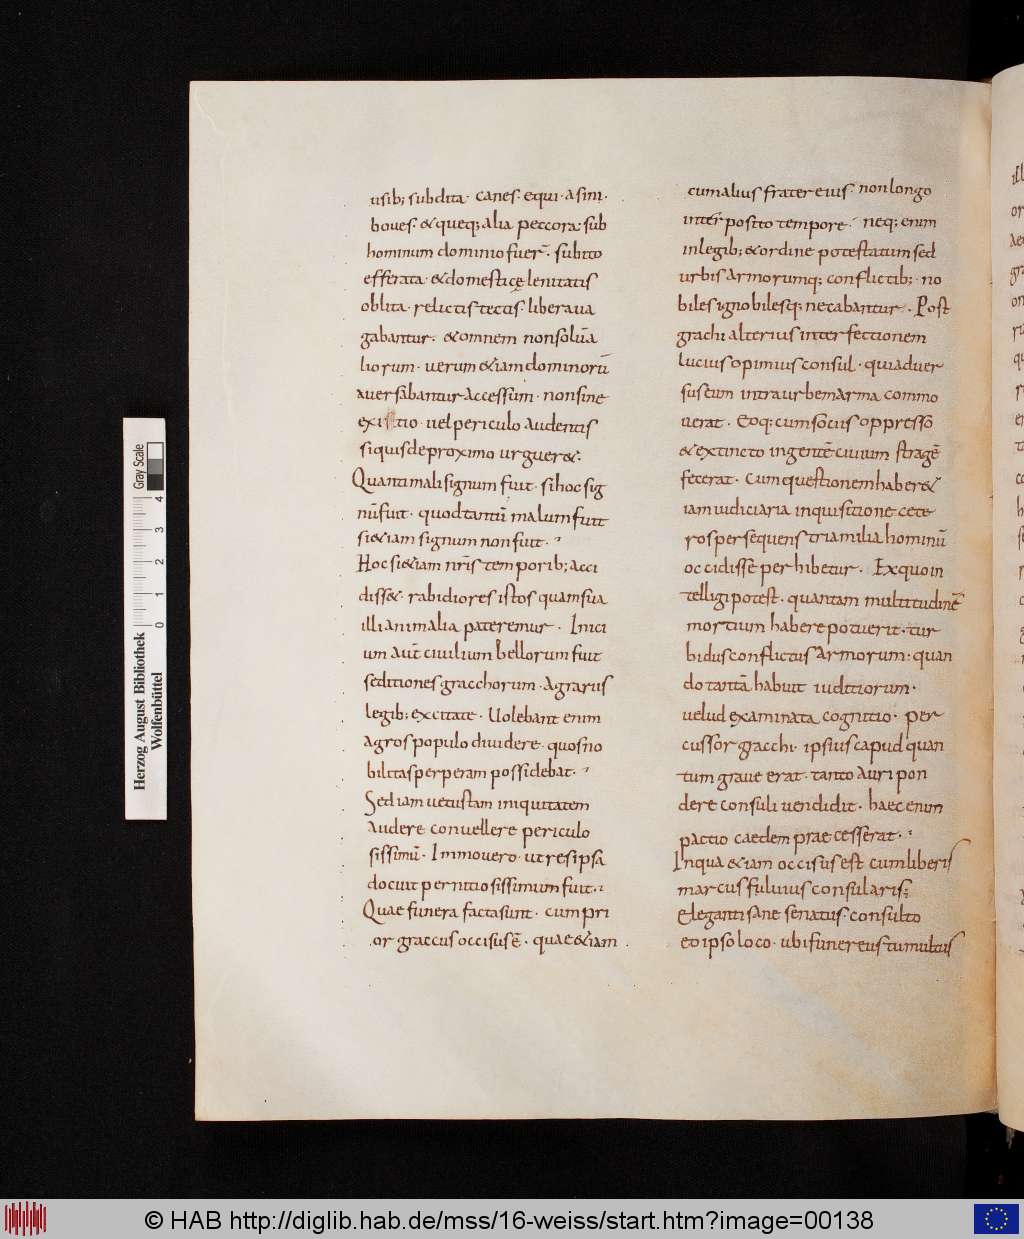 usib; subdita· canes· equi· asini·
boues· &queq; alia peccora· sub
hominum dominio fuer̄· subito
efferata· &domesticę lenitatis
oblita· relictis tectis· liberaua
gabantur· &omnem nonsolū a
liorum· uerum &iam dominorū
auersabantur accessum· non sine
exitio· uel periculo audentis
siquis de proximo urguer&·
Quanti mali signum fuit· si hoc sig
nū fuit· quod tantū malum fuit
si &iam signum non fuit·
Hoc si &iam nr̄is temporib; acci
diss&· rabidiores istos quam sua
illi animalia pateremur· Inici
um aut̄ ciuilium bellorum fuit
seditiones gracchorum· agrariis
legib; excitate· Uolebant enim
agros populo diuidere· quos no
bilitas perperam possidebat·
Sed iam uetustam iniquitatem
audere conuellere periculo
sissimū· Immo uero· ut res ipsa
docuit pernitiosissimum fuit·
Quae funera facta sunt· cum pri
or graccus occisus ē· quae &iam
cum alius frater eius· non longo
inter posito tempore· neq; enim
in legib; &ordine potestatum sed
urbis armorumq; conflictib;· no
biles ignobilesq; necabantur· Post
grachi alterius interfectionem
lucius opimius consul· qui aduer
sus eum intra urbem arma commo
uerat· Eoq; cum sociis oppresso
&extincto ingentē ciuium stragē
fecerat· Cum questionem haber&
iam iudiciaria inquisitione cete
ros persequens tria milia hominū
occidisse perhibetur· Ex quo in
telligi potest· quantam multitudinē
mortium habere potuerit· tur
bidus conflictus armorum: quan
do tantā habuit iuditiorum·
uelud examinata cognitio· per
cussor gracchi· ipsius capud quan
tum graue erat· tanto auri pon
dere consuli uendidit· haec enim
pactio caedem praecesserat·
In qua &iam occisus est cum liberis
marcus fuluius consularis;
Eleganti sane senatus· consulto
eo ipso loco· ubi funereus tumultus
Herzog August Bibliothek
Wolfenbüttel
0 1 2 3 4
Gray Scale
© HAB http://diglib.hab.de/mss/16-weiss/start.htm?image=00138